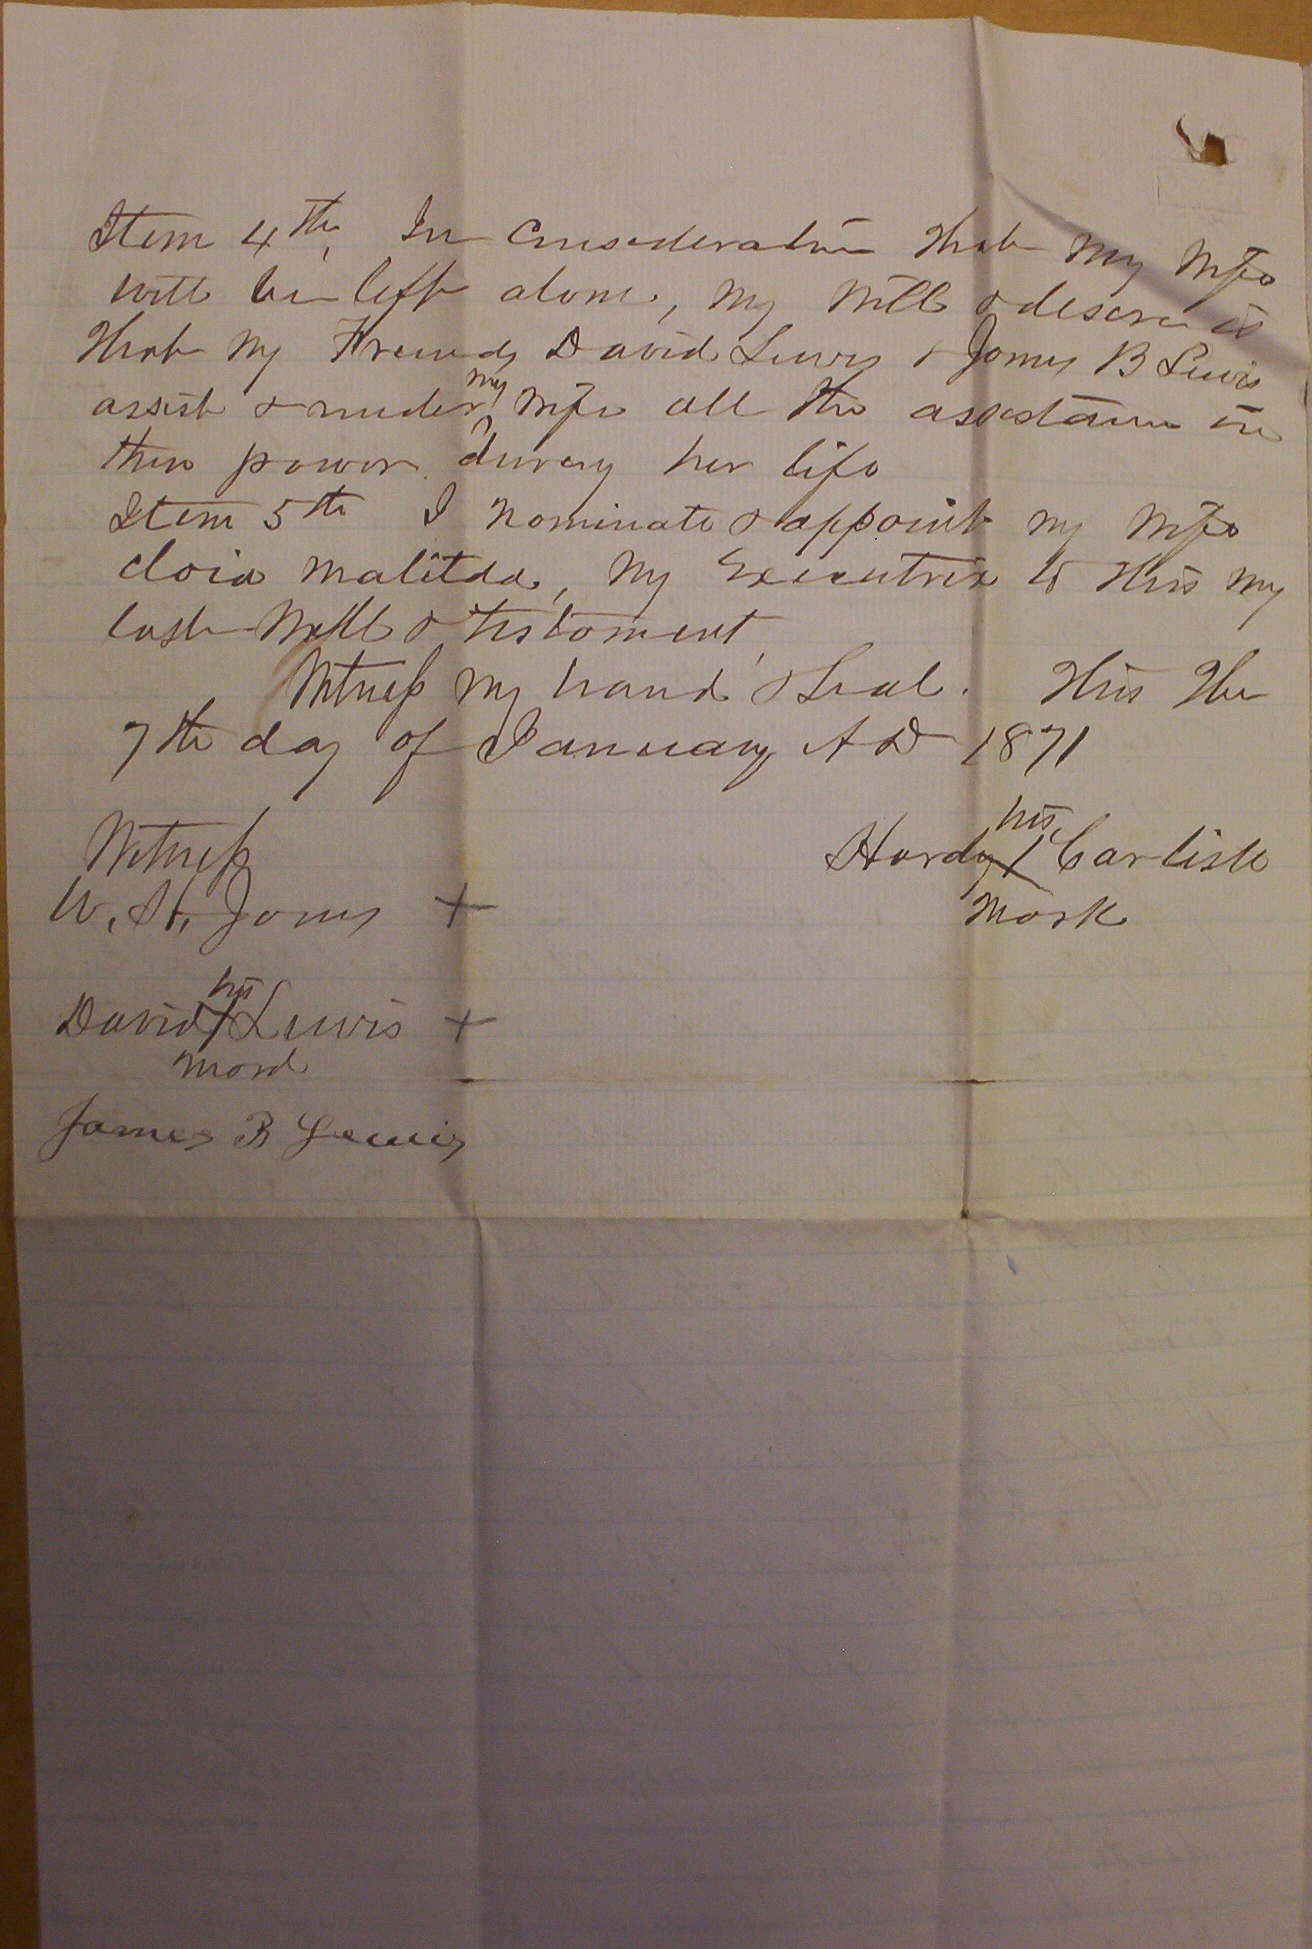 Item 4th, In Consideration that my wife
will be left alone, my will & desire is
that my Friends David Lewis & James B Lewis
assist & render my wife all the assistance in
their power during her life
Item 5th I nominate & appoint my wife
cloia malitda, my Executrix to this my
last will & testament,
Witness my hand & Seal. This the
7th day of January A D 1871
Witness
his
Hardy X Carlisle
mark
W. H. Jones +
his
David X Lewis +
mark
James B Lewis